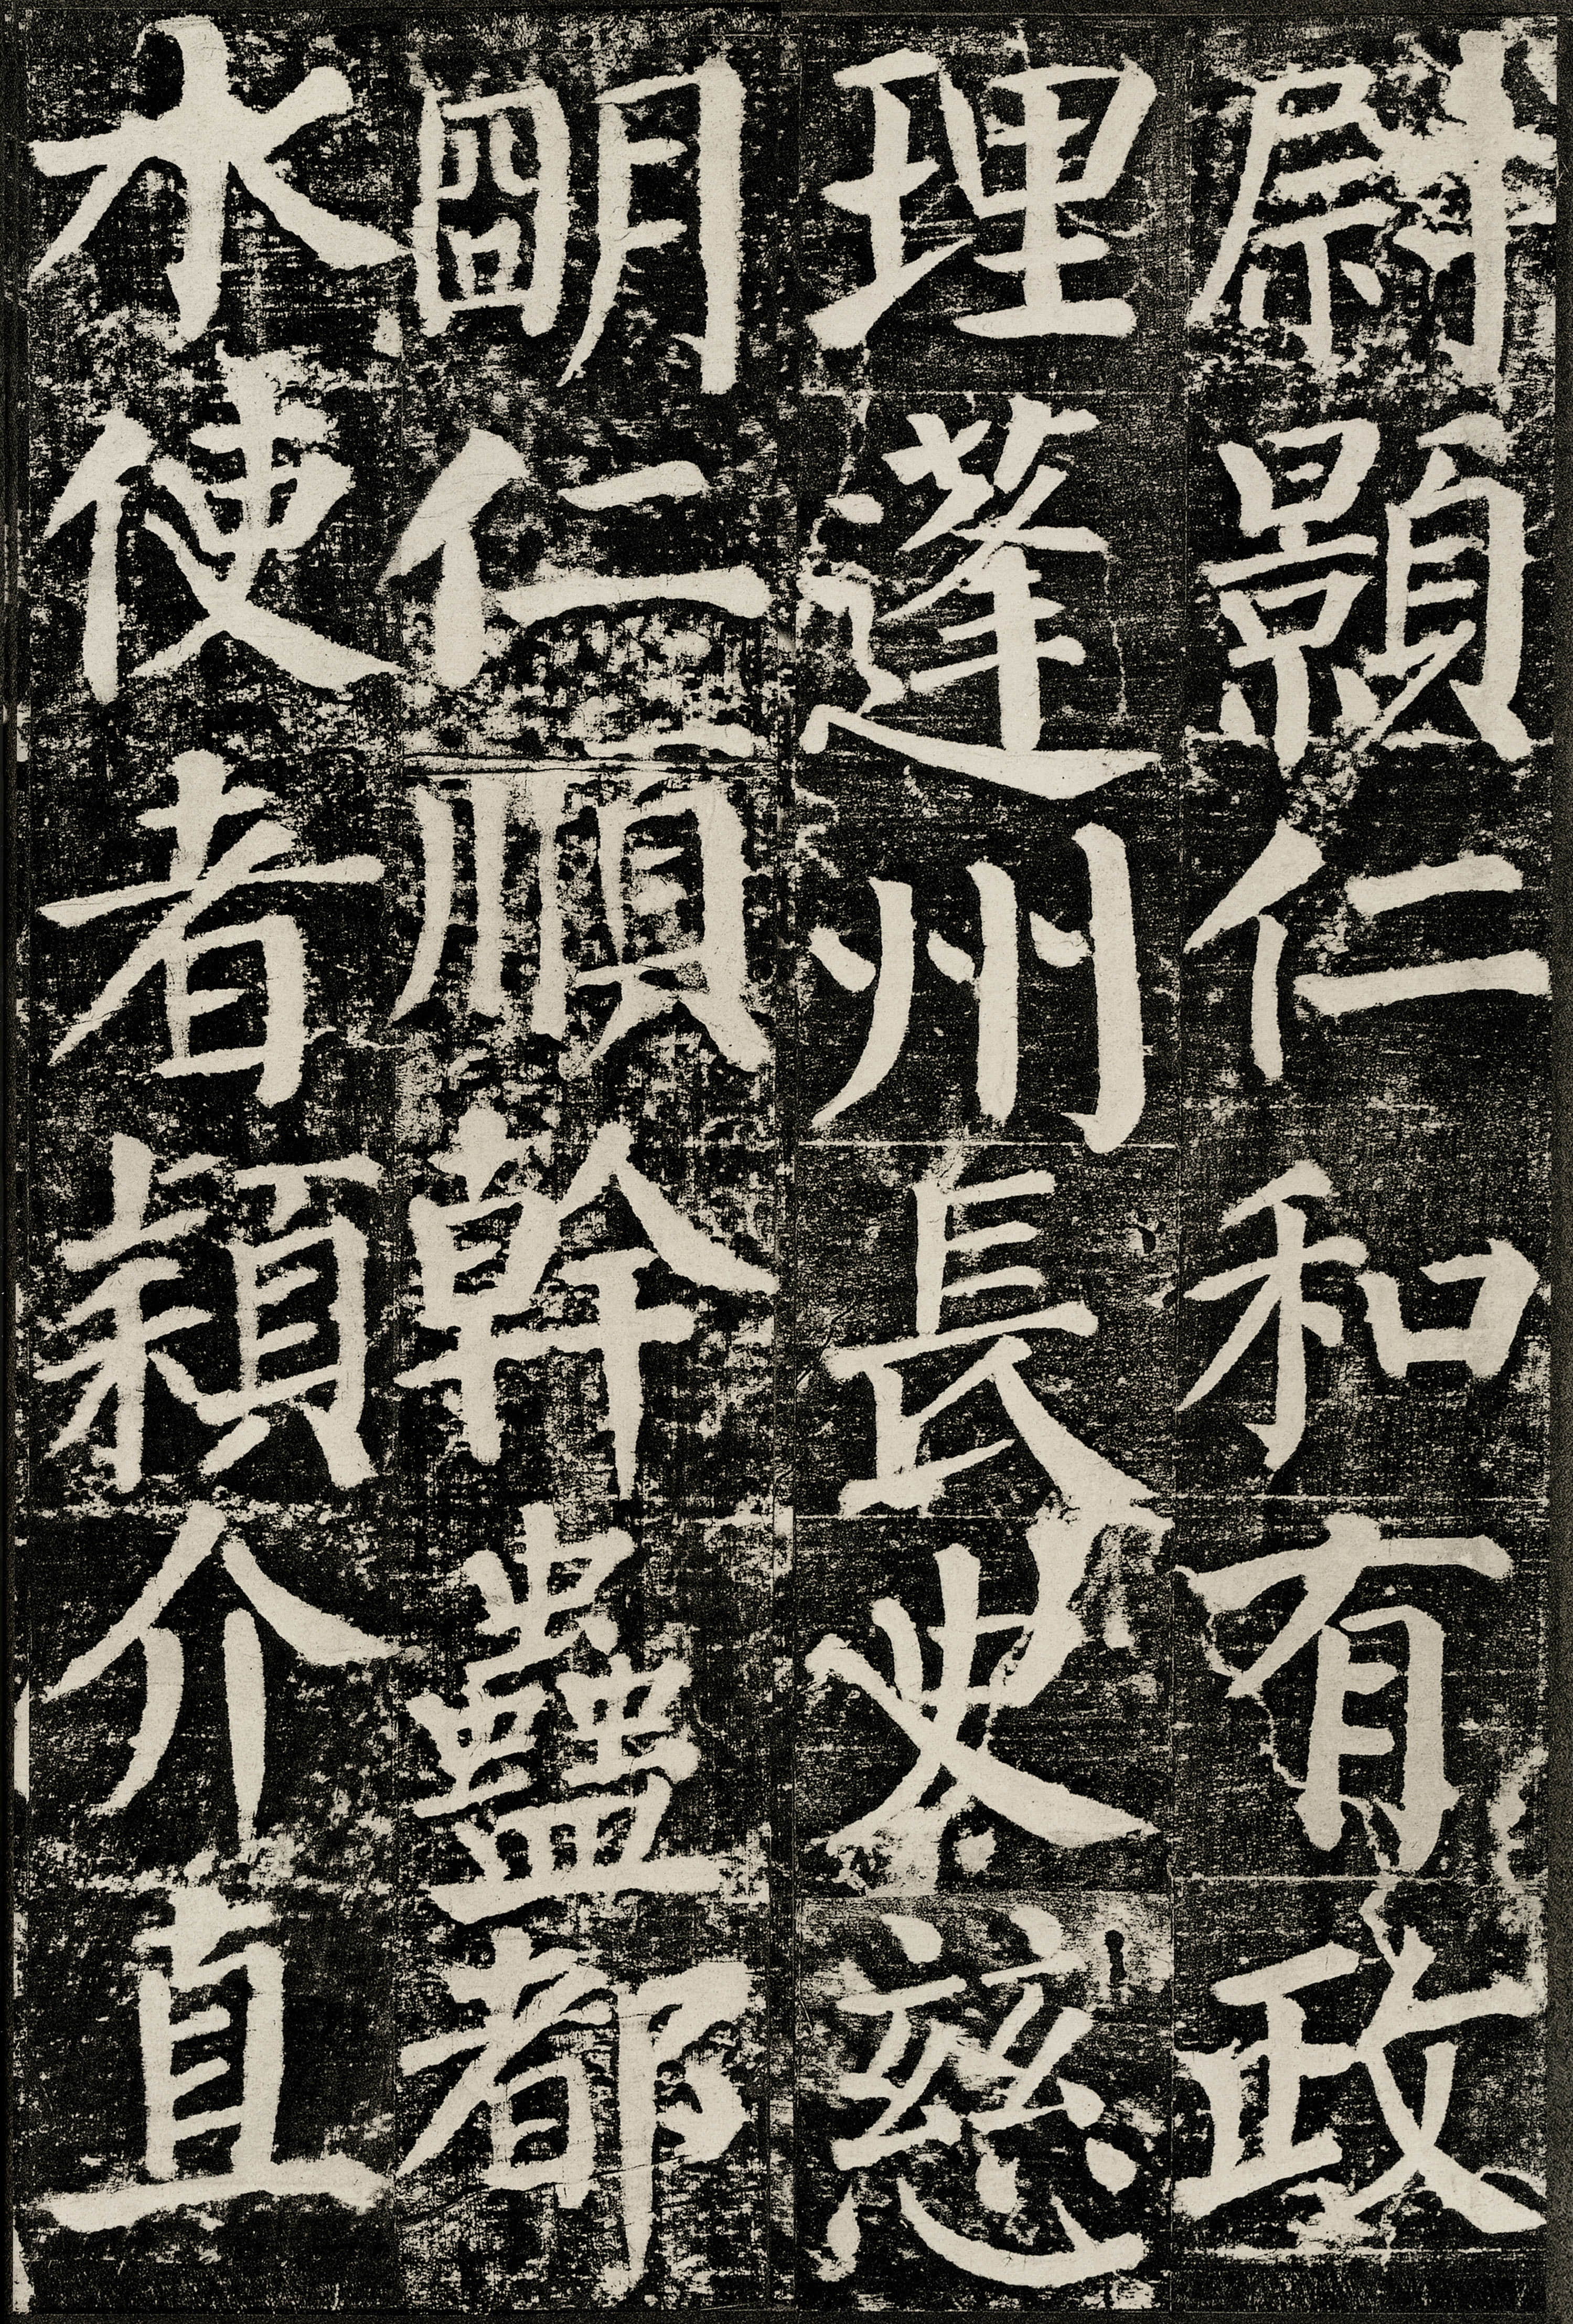 尉顥仁和有政
理蓬州長史慈
明仁順幹蠱都
水使者潁介直